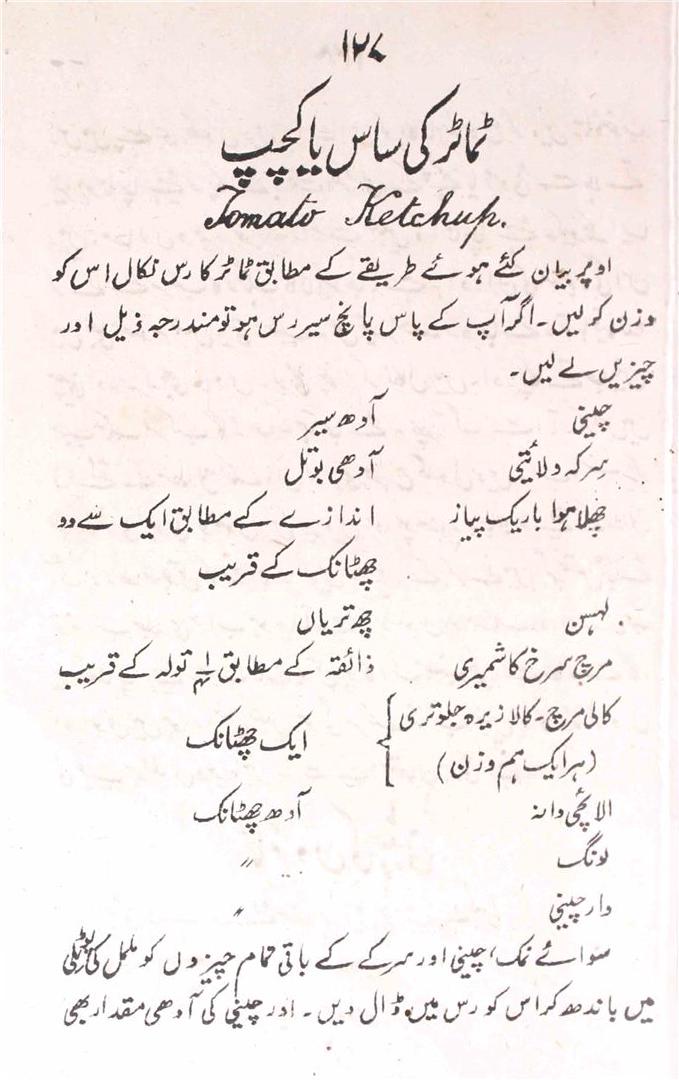 ۱۲۷
ٹماٹر کی ساس یا کچپ
Tomato Ketchup.
اوپر بیان کئے ہوئے طریقے کے مطابق ٹماٹر کا رس نکال اس کو
وزن کو لیں۔ اگر آپ کے پاس پانچ سیر رس ہو تو مندرجہ ذیل اور
چیزیں لے لیں۔
چینی آدھ سیر
سرکہ ولائیتی آدھی بوتل
چھلا ہوا باریک پیاز اندازے کے مطابق ایک سے دو
چھٹانک کے قریب
لہسن چھ تریاں
مرچ سرخ کاشمیری ذائقہ کے مطابق تولہ کے قریب
کالی مرچ۔ کالا زیرہ جلوتری
(ہر ایک ہم وزن) ایک چھٹانک
الائچی دانہ آدھ چھٹانک
لونگ 〃
دار چینی 〃
سوائے نمک، چینی اور سرکے کے باقی تمام چیزوں کو ململ کی پوٹلی
میں باندھ کر اس کو رس میں ڈال دیں۔ اور چینی کی آدھی مقدار بھی